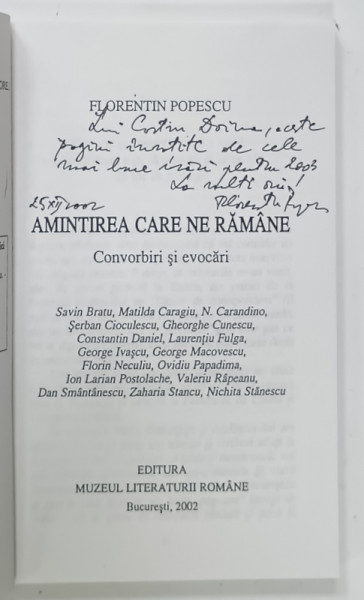 FLORENTIN POPESCU
Lui Costin Doina, aceste
pagini însoțite de cele
mai bune urări pentru 2003
La mulți ani!
25 XII 2002
AMINTIREA CARE NE RĂMÂNE
Convorbiri şi evocări
Savin Bratu, Matilda Caragiu, N. Carandino,
Şerban Cioculescu, Gheorghe Cunescu,
Constantin Daniel, Laurenţiu Fulga,
George Ivaşcu, George Macovescu,
Florin Neculiu, Ovidiu Papadima,
Ion Larian Postolache, Valeriu Râpeanu,
Dan Smântânescu, Zaharia Stancu, Nichita Stănescu
EDITURA
MUZEUL LITERATURII ROMÂNE
Bucureşti, 2002